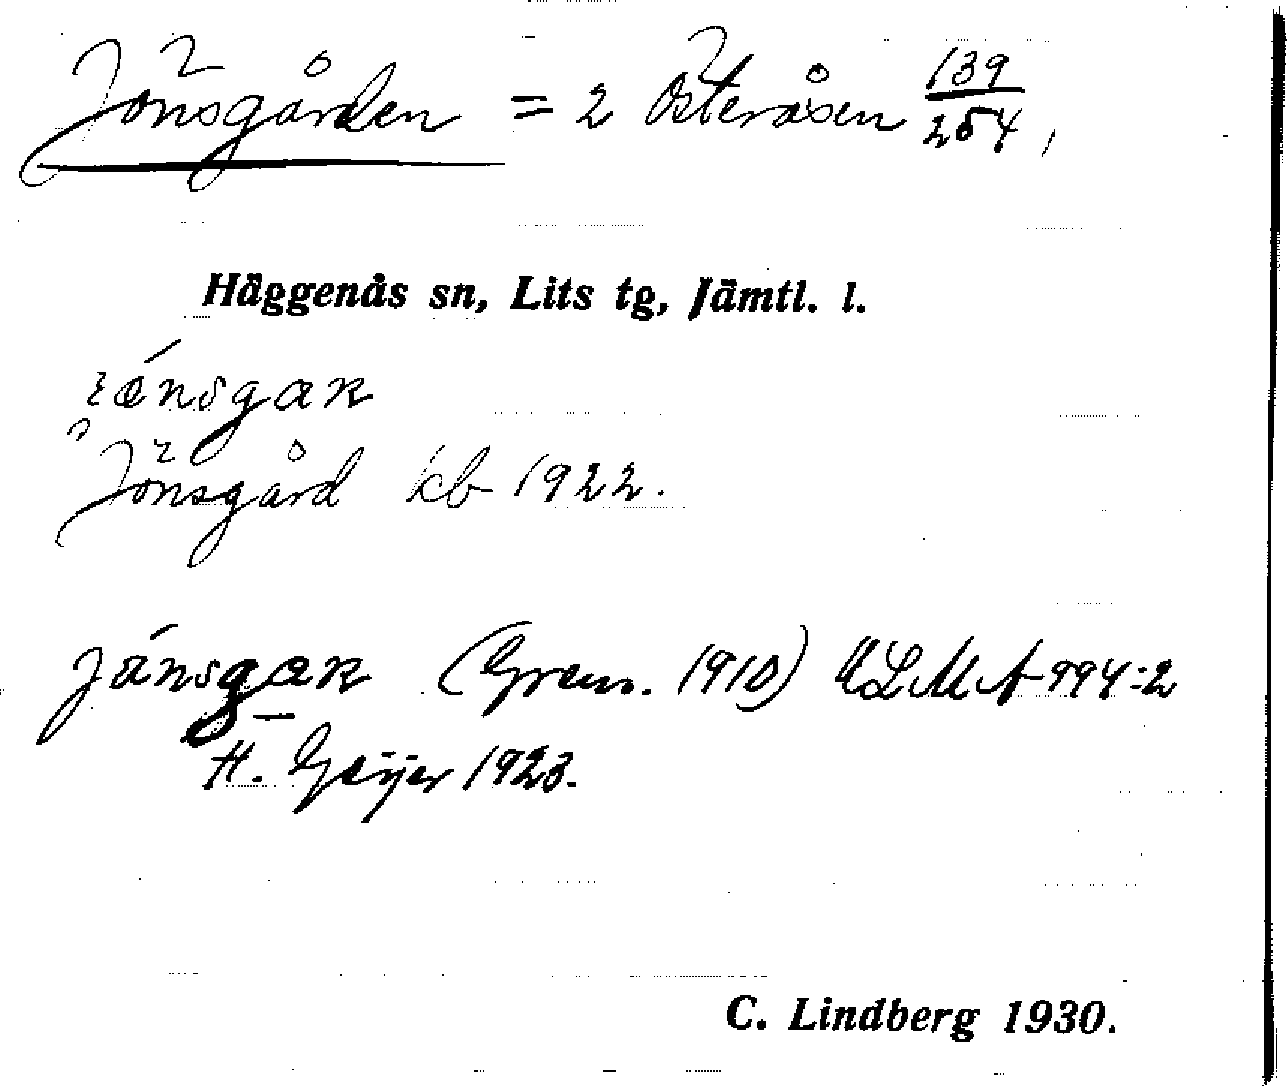 Jönsgården = 2 Österåsen 139/254,
Häggenås sn, Lits tg, Jämtl. l.
Jönsgård kb 1922.
jánsgaɴ (Grens. 1910) ULMA 994:2
H. Geijer 1923.
C. Lindberg 1930.